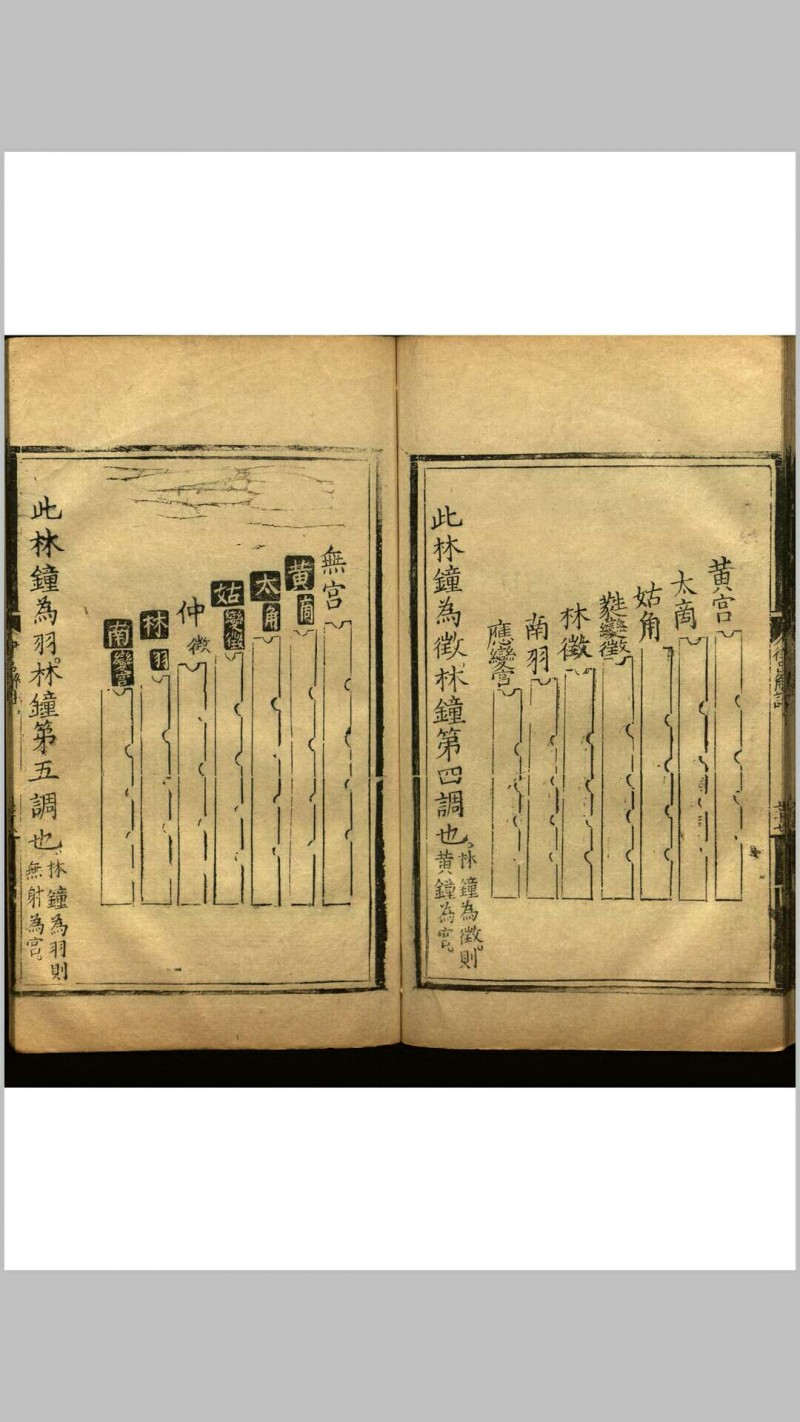 黄宫
太商
姑角
蕤變徵
林徵
南羽
應變宫
此林鐘為徵林鐘第四調也
林鐘為徵則
黄鐘為宫
無宫
黄商
太角
姑變徵
仲徵
林羽
南變宫
此林鐘為羽林鐘第五調也
林鐘為羽則
無射為宫